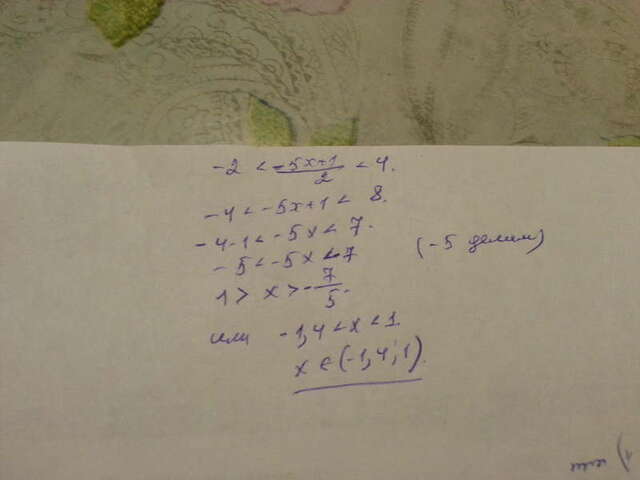 -2 < -5x+1/2 < 4.
-4 < -5x+1 < 8.
-4-1 < -5x < 7.
-5 < -5x < 7 (-5 делим)
1 > x > -7/5.
или -1,4 < x < 1.
x ∈ (-1,4; 1).